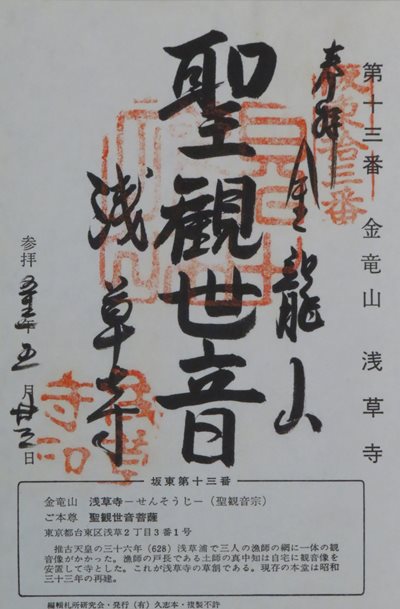 第十三番 金竜山 浅草寺
坂東拾三番
奉拝 金龍山
聖観世音
浅草寺
参拝 五十三年 五月廿三日
坂東第十三番
金竜山 浅草寺−せんそうじ−（聖観音宗）
ご本尊 聖観世音菩薩
東京都台東区浅草２丁目３番１号
推古天皇の三十六年（628）浅草浦で三人の漁師の網に一体の観
音像がかかった。漁師の戸長である土師の真中知は自宅に観音像を
安置して寺とした。これが浅草寺の草創である。現存の本堂は昭和
三十三年の再建。
編輯札所研究会・発行（有）久志本・複製不許